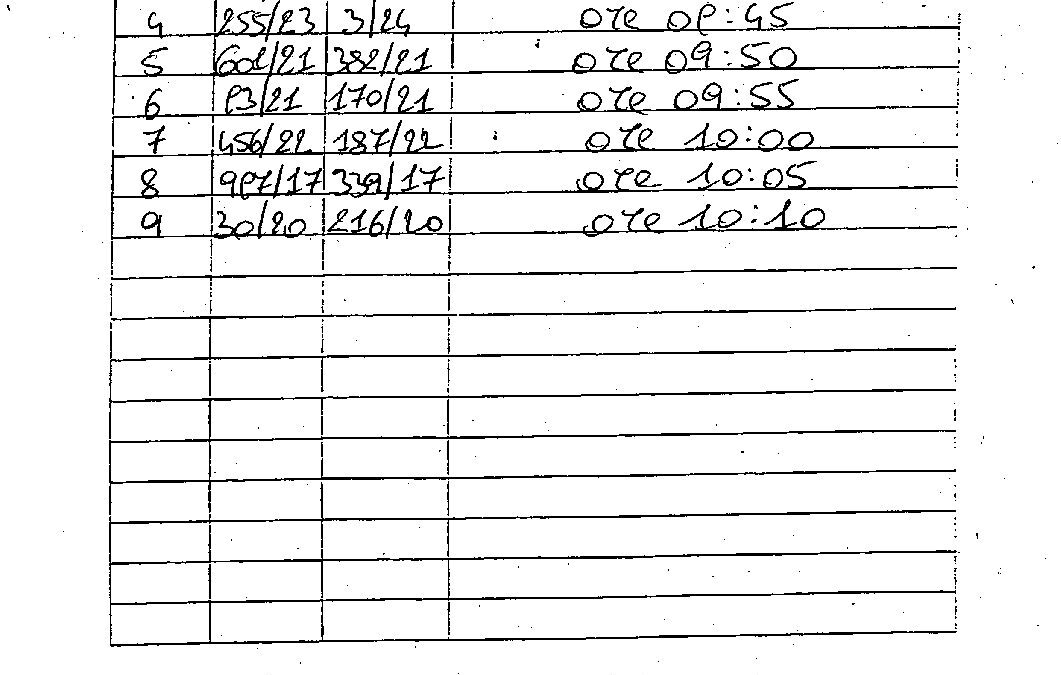 4 255/23 3/24 ore 09:45
5 382/21 ore 09:50
6 170/21 ore 09:55
7 456/22 187/22 ore 10:00
8 ore 10:05
9 30/20 216/20 ore 10:10